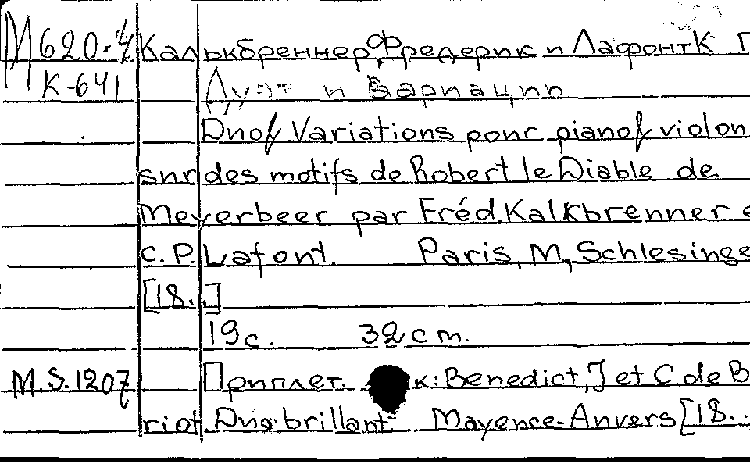 М620-4 Калькбреннер, Фредерик и Лафонт К П
К-641 Дуэт и Вариации
Duo & Variations pour piano & violon
sur des motifs de Robert le Diable de
Meyerbeer par Fréd. Kalkbrenner e
C.P. Lafont. Paris, M, Schlesinge
[18..]
19с. 32 cm.
M.S.1207 Приплет. к: Benedict, J et C de B
riot. Duo brillant Mayence-Anvers [18..